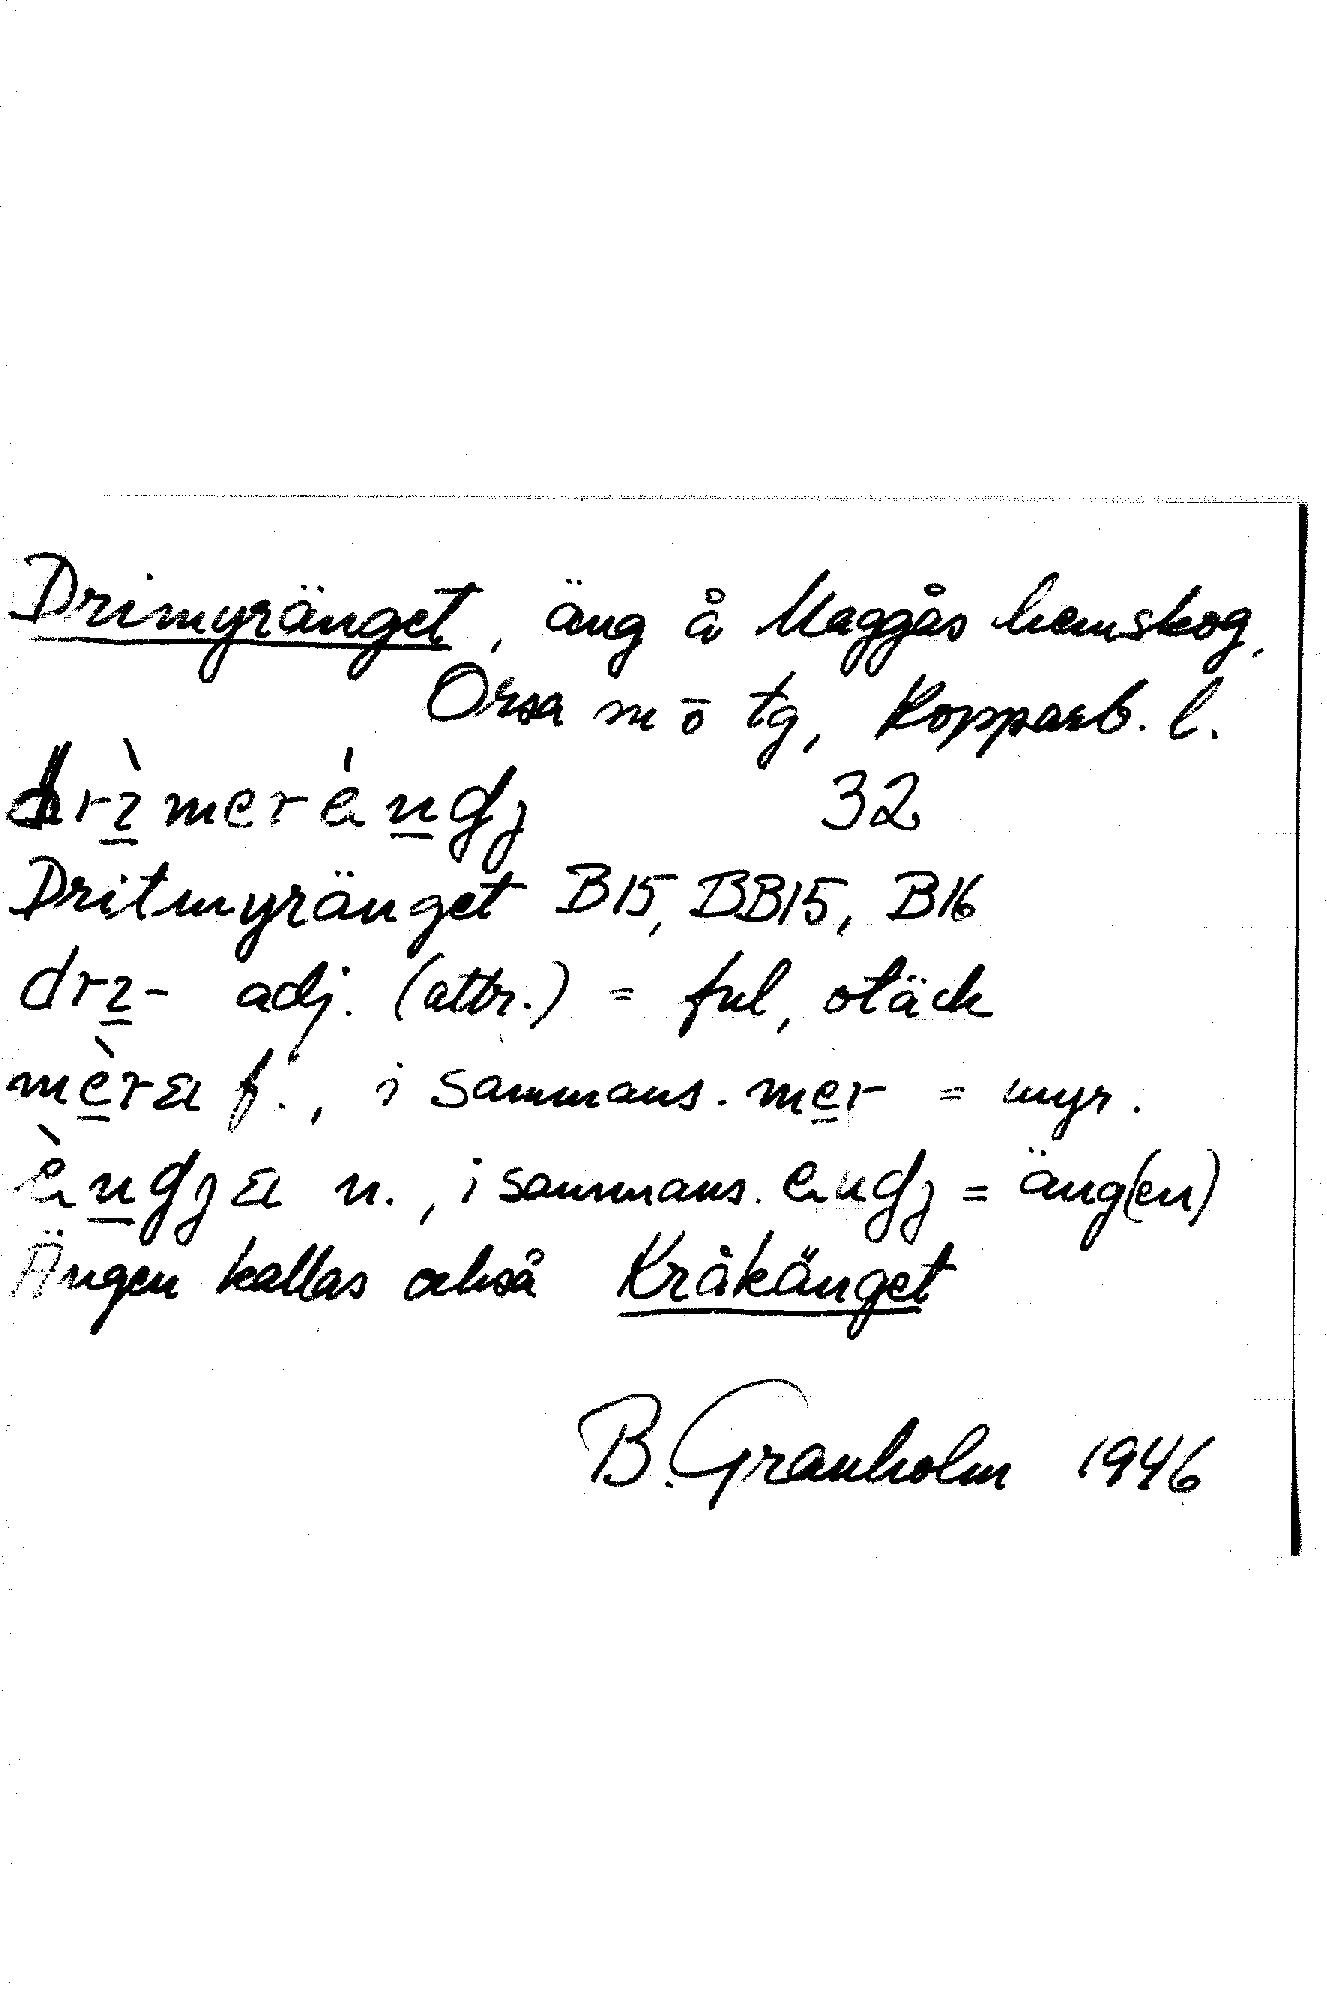 Drimyränget, äng å Maggås hemskog,
Orsa m o tg, Kopparb. l.
drɩ̀meréndȷ 32
Dritmyränget B15, BB15, B16
drɩ- adj. (attr.) = ful, otäck
mèræ f., i sammans. mer = myr.
èndȷæ n., i sammans. endȷ = äng(en)
Ängen kallas också Kråkänget
B. Granholm 1946